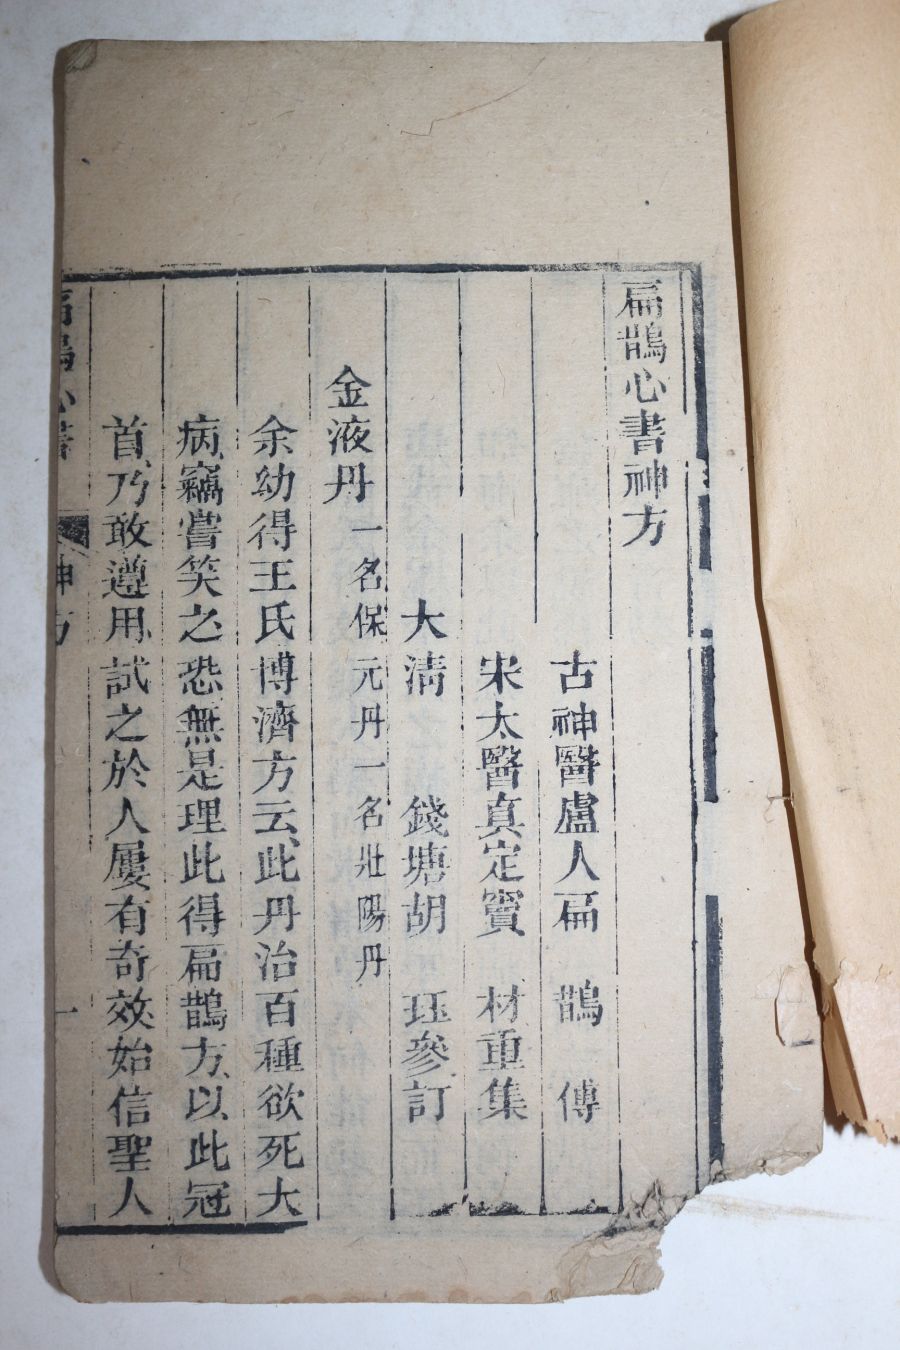 扁鵲心書神方
古神醫盧人扁 鵲 傳
宋太醫真定竇 材重集
大清 錢塘胡 珏參訂
金液丹 一名保元丹一名壯陽丹
余幼得王氏博濟方云、此丹治百種欲死大
病、竊嘗笑之、恐無是理、此得扁鵲方、以此冠
首、乃敢遵用、試之於人屢有奇效、始信聖人
扁鵲心書 神方 一